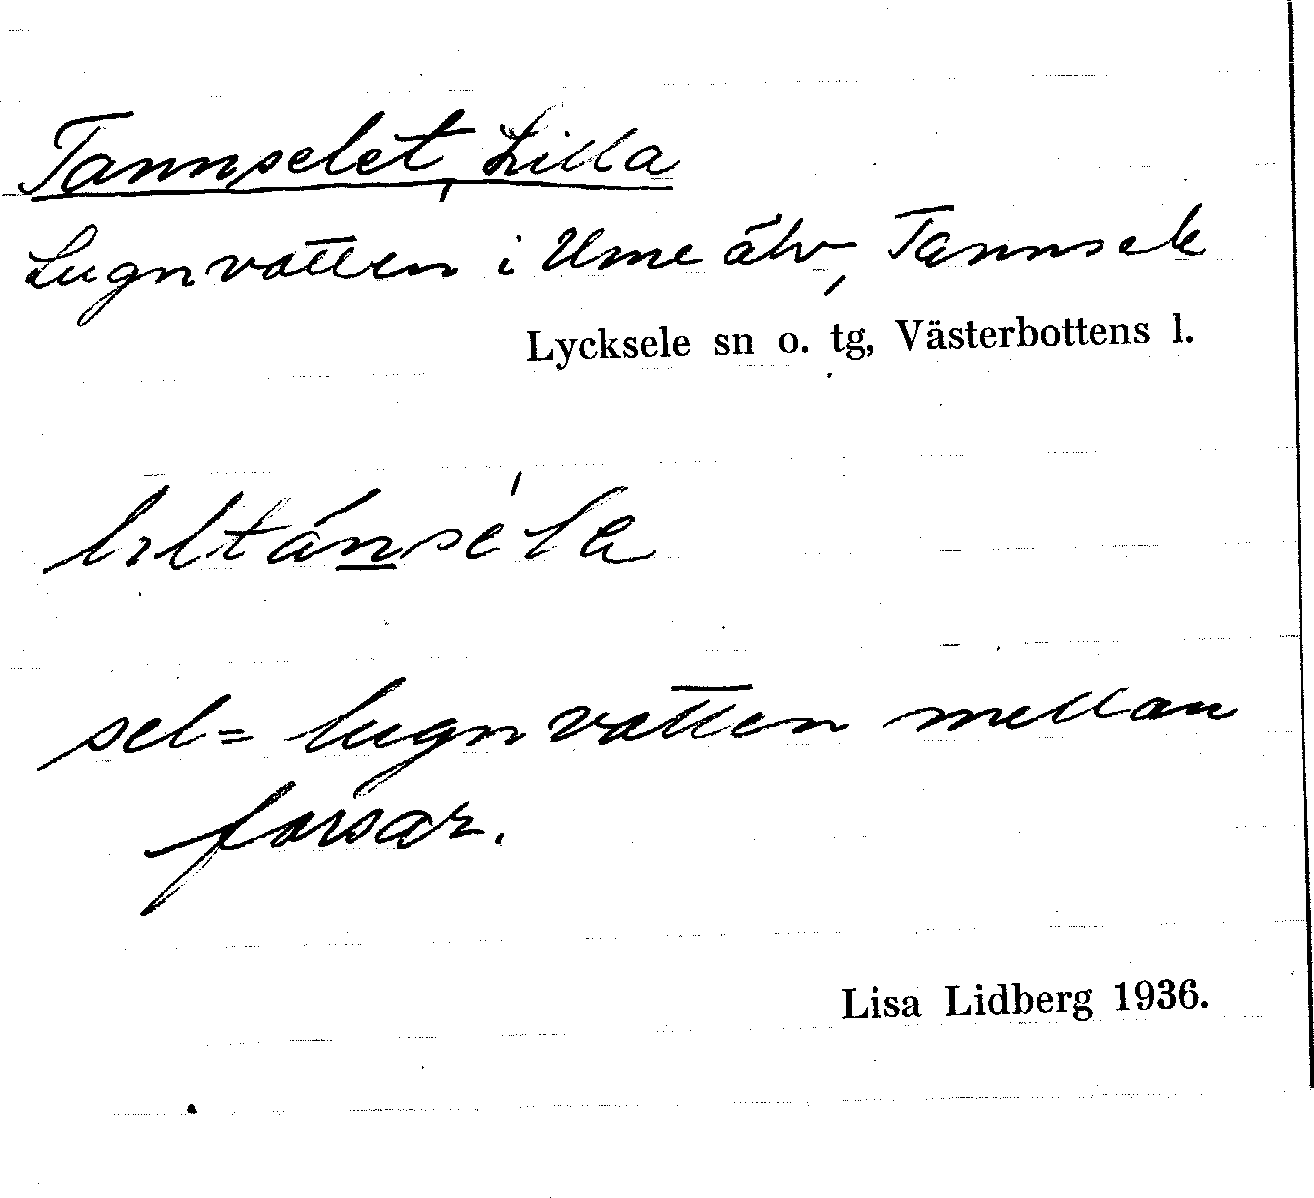 Tannselet, Lilla
Lugnvatten i Ume älv, Tannsele
Lycksele sn o. tg, Västerbottens l.
sel = lugnvatten mellan
forsar.
Lisa Lidberg 1936.